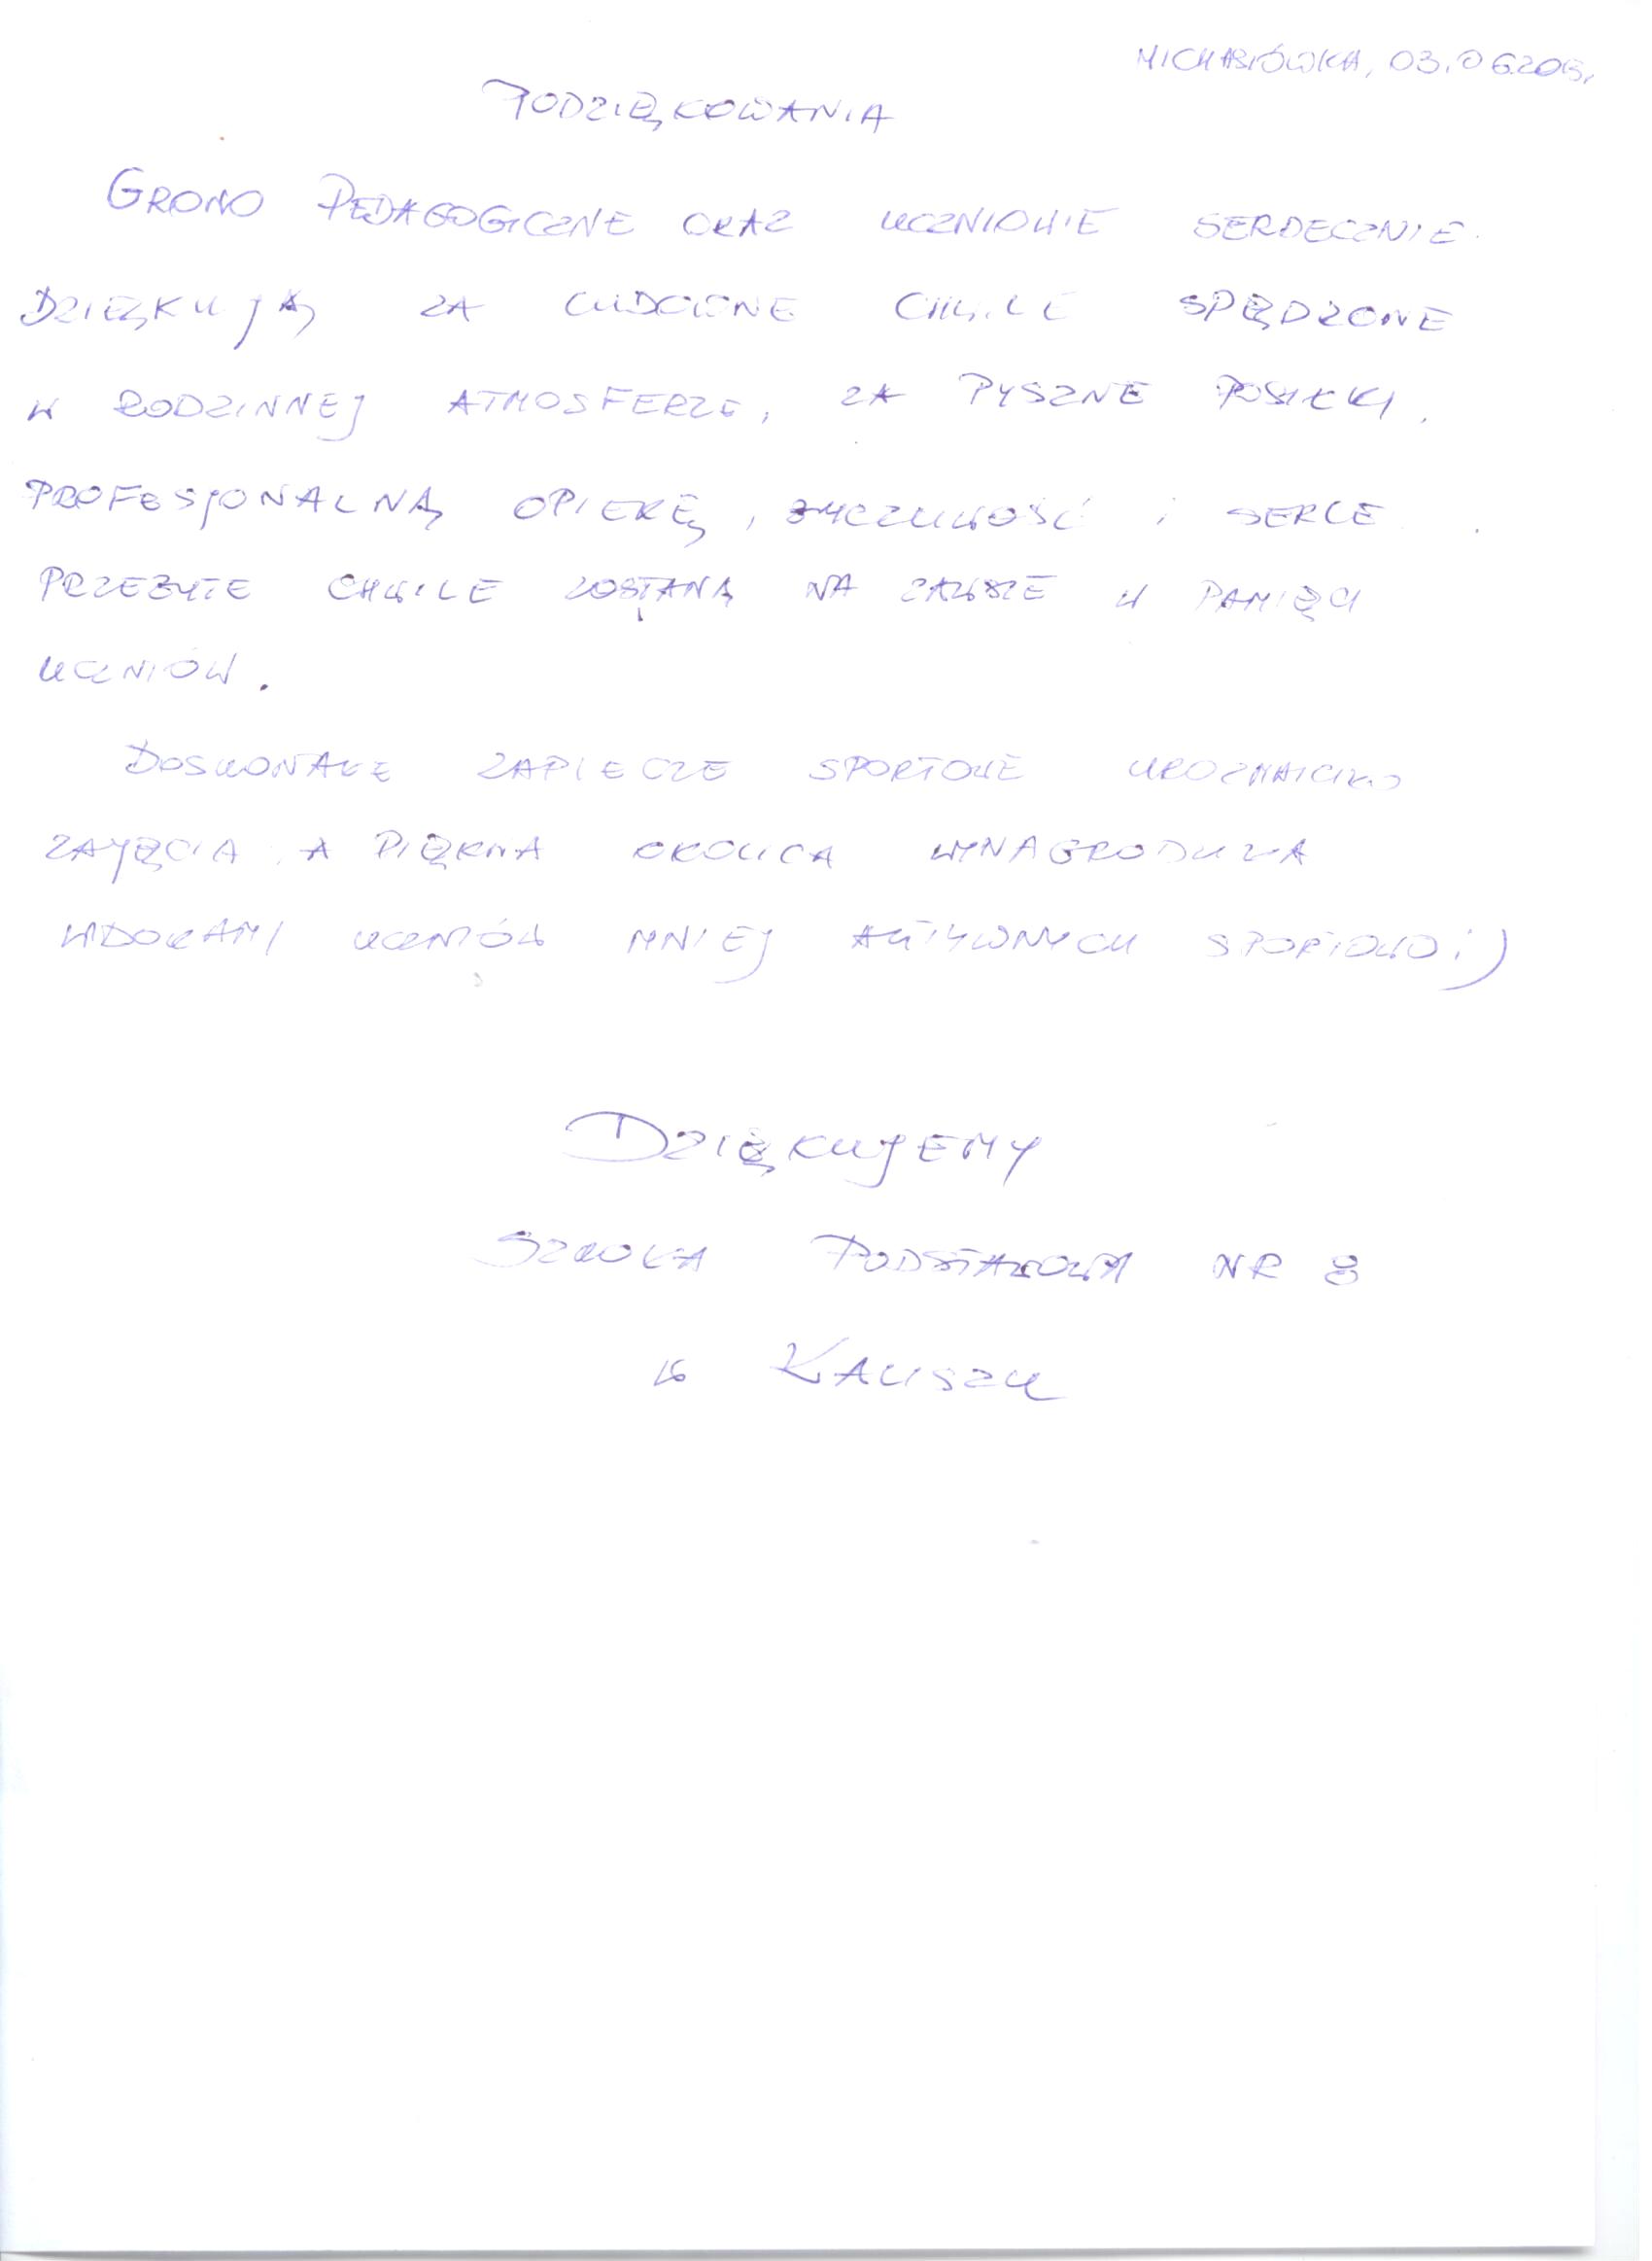 MICHAŁÓWKA, 03.06.2015.
PODZIĘKOWANIA
GRONO PEDAGOGICZNE ORAZ UCZNIOWIE SERDECZNIE
DZIĘKUJĄ ZA CUDOWNE CHWILE SPĘDZONE
W RODZINNEJ ATMOSFERZE, ZA PYSZNE POSIŁKI,
PROFESJONALNĄ OPIEKĘ, ŻYCZLIWOŚĆ I SERCE.
PRZEBYTE CHWILE ZOSTANĄ NA ZAWSZE W PAMIĘCI
UCZNIÓW.
DOSKONAŁE ZAPLECZE SPORTOWE UROZMAICIŁO
ZAJĘCIA, A PIĘKNA OKOLICA WYNAGRODZIŁA
WIDOKAMI UCZNIÓW MNIEJ AKTYWNYCH SPORTOWO :)
DZIĘKUJEMY
SZKOŁA PODSTAWOWA NR 8
W KALISZU